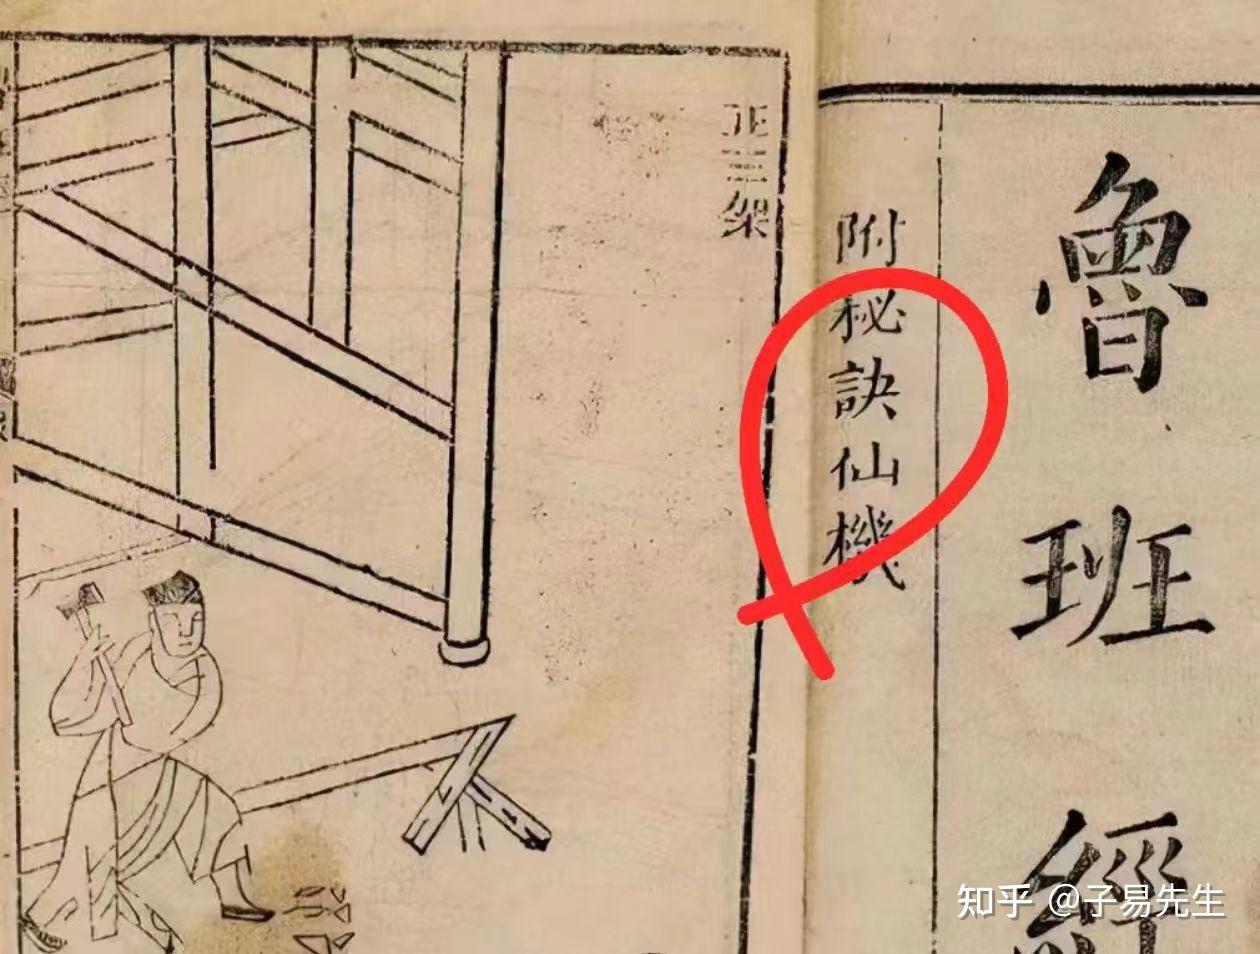 魯班經
附秘訣仙機
正三架
知乎 @子易先生